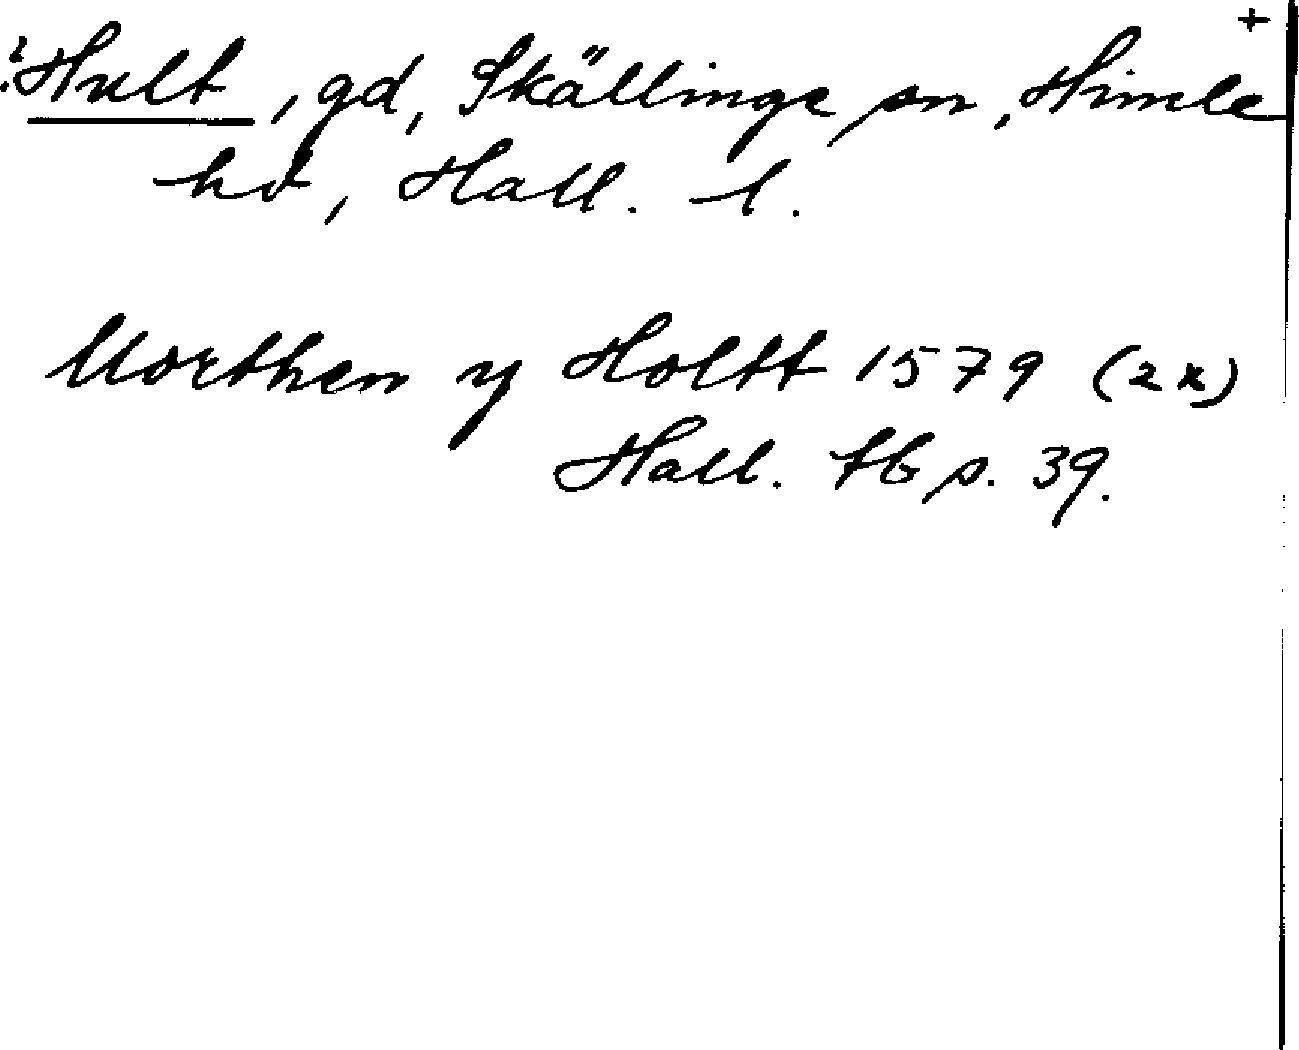 +
Hult, gd, Skällinge sn, Himle
hd, Hall. l.
Morthen y Holtt 1579 (2x)
Hall. tb s. 39.